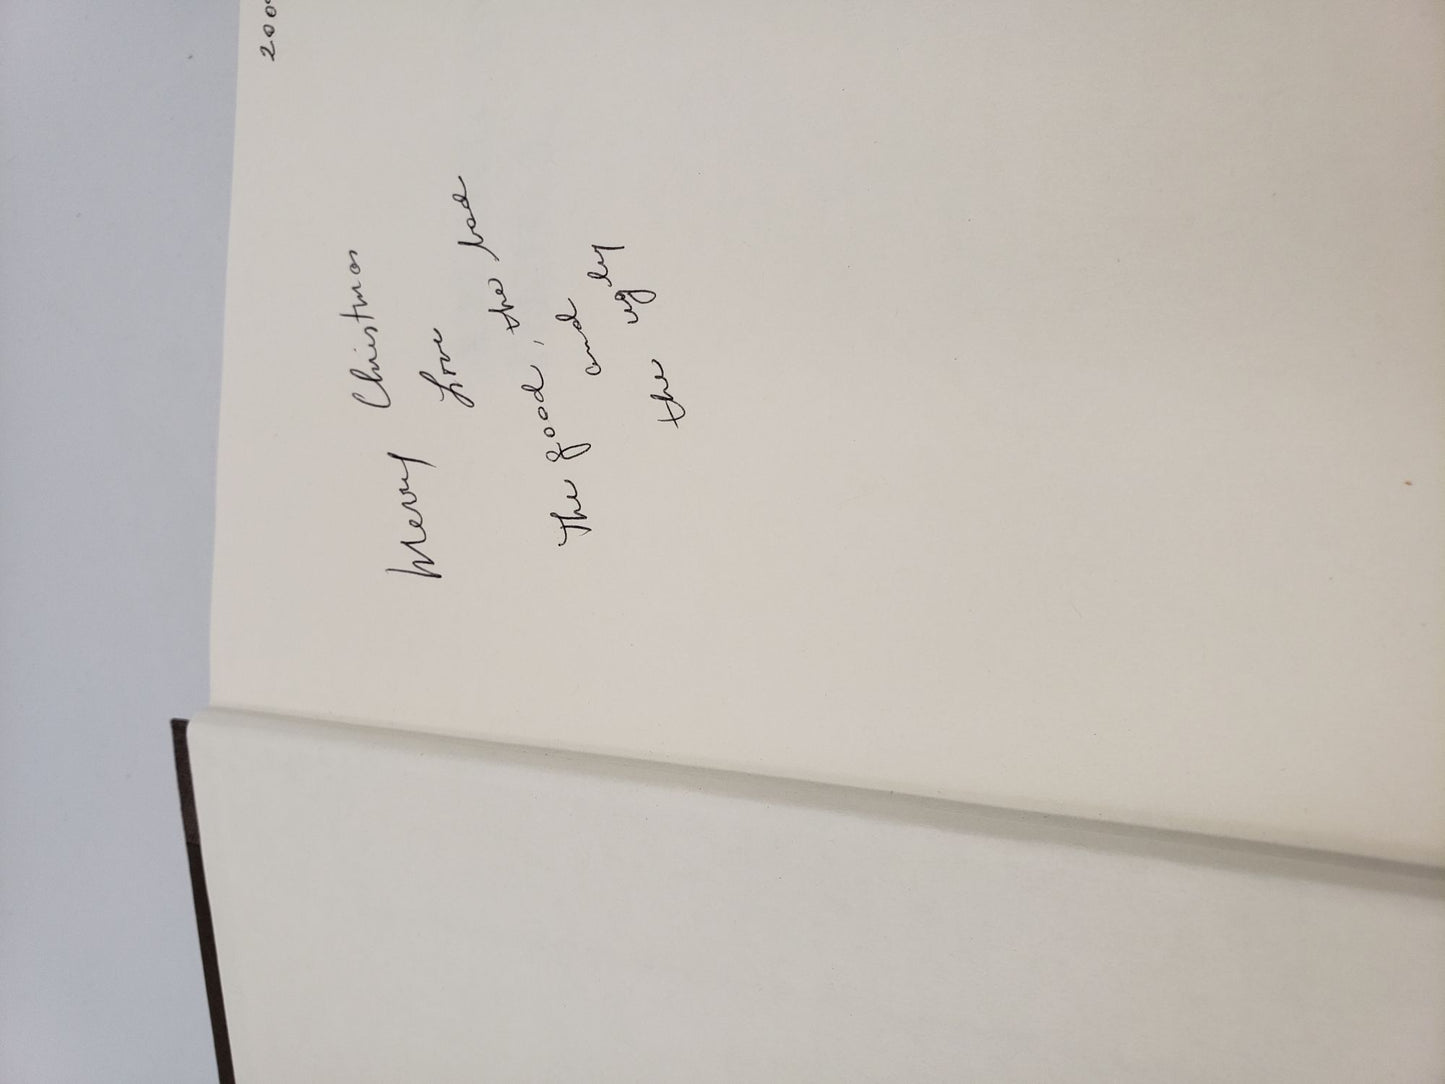 Merry Christmas
Love
The good, the bad
and
the ugly